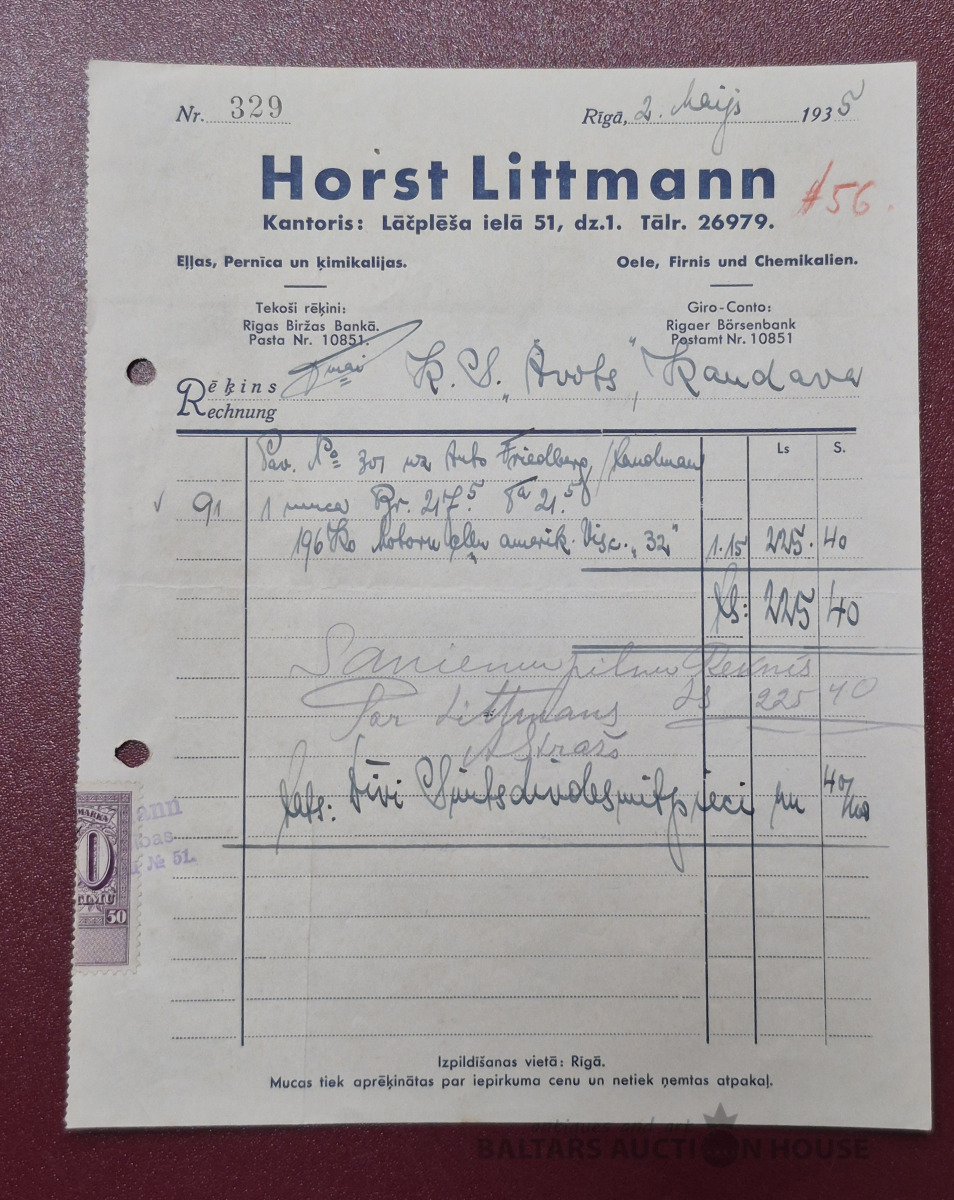 Nr. 329
Rīgā, 2. Maijs 1935
Horst Littmann
#56.
Kantoris: Lāčplēša ielā 51, dz.1. Tālr. 26979.
Eļļas, Pernīca un ķimikalijas.
Oele, Firnis und Chemikalien.
Tekoši rēķini:
Rīgas Biržas Bankā.
Pasta Nr. 10851.
Giro-Conto:
Rigaer Börsenbank
Postamt Nr. 10851
Rēķins
Rechnung
K. S. „Avots" Kandava
Ls S.
Pav. No 301 Auto Friedberg
91 1 muca Br. 217.5 Ta 21.5
196 Ko Motoru eļļa amerik. Visc. „32" 1.15 225. 40
Ls: 225 40
Saņemu pilnu Reķnis
Ls 225 40
Par Littmans
A Strašs
Lats: Divi Simtsdivdesmitpieci un 40/100
ann
bas
№ 51.
MARKA
50
Izpildīšanas vietā: Rīgā.
Mucas tiek aprēķinātas par iepirkuma cenu un netiek ņemtas atpakaļ.
antiques and art
BALTARS AUCTION HOUSE